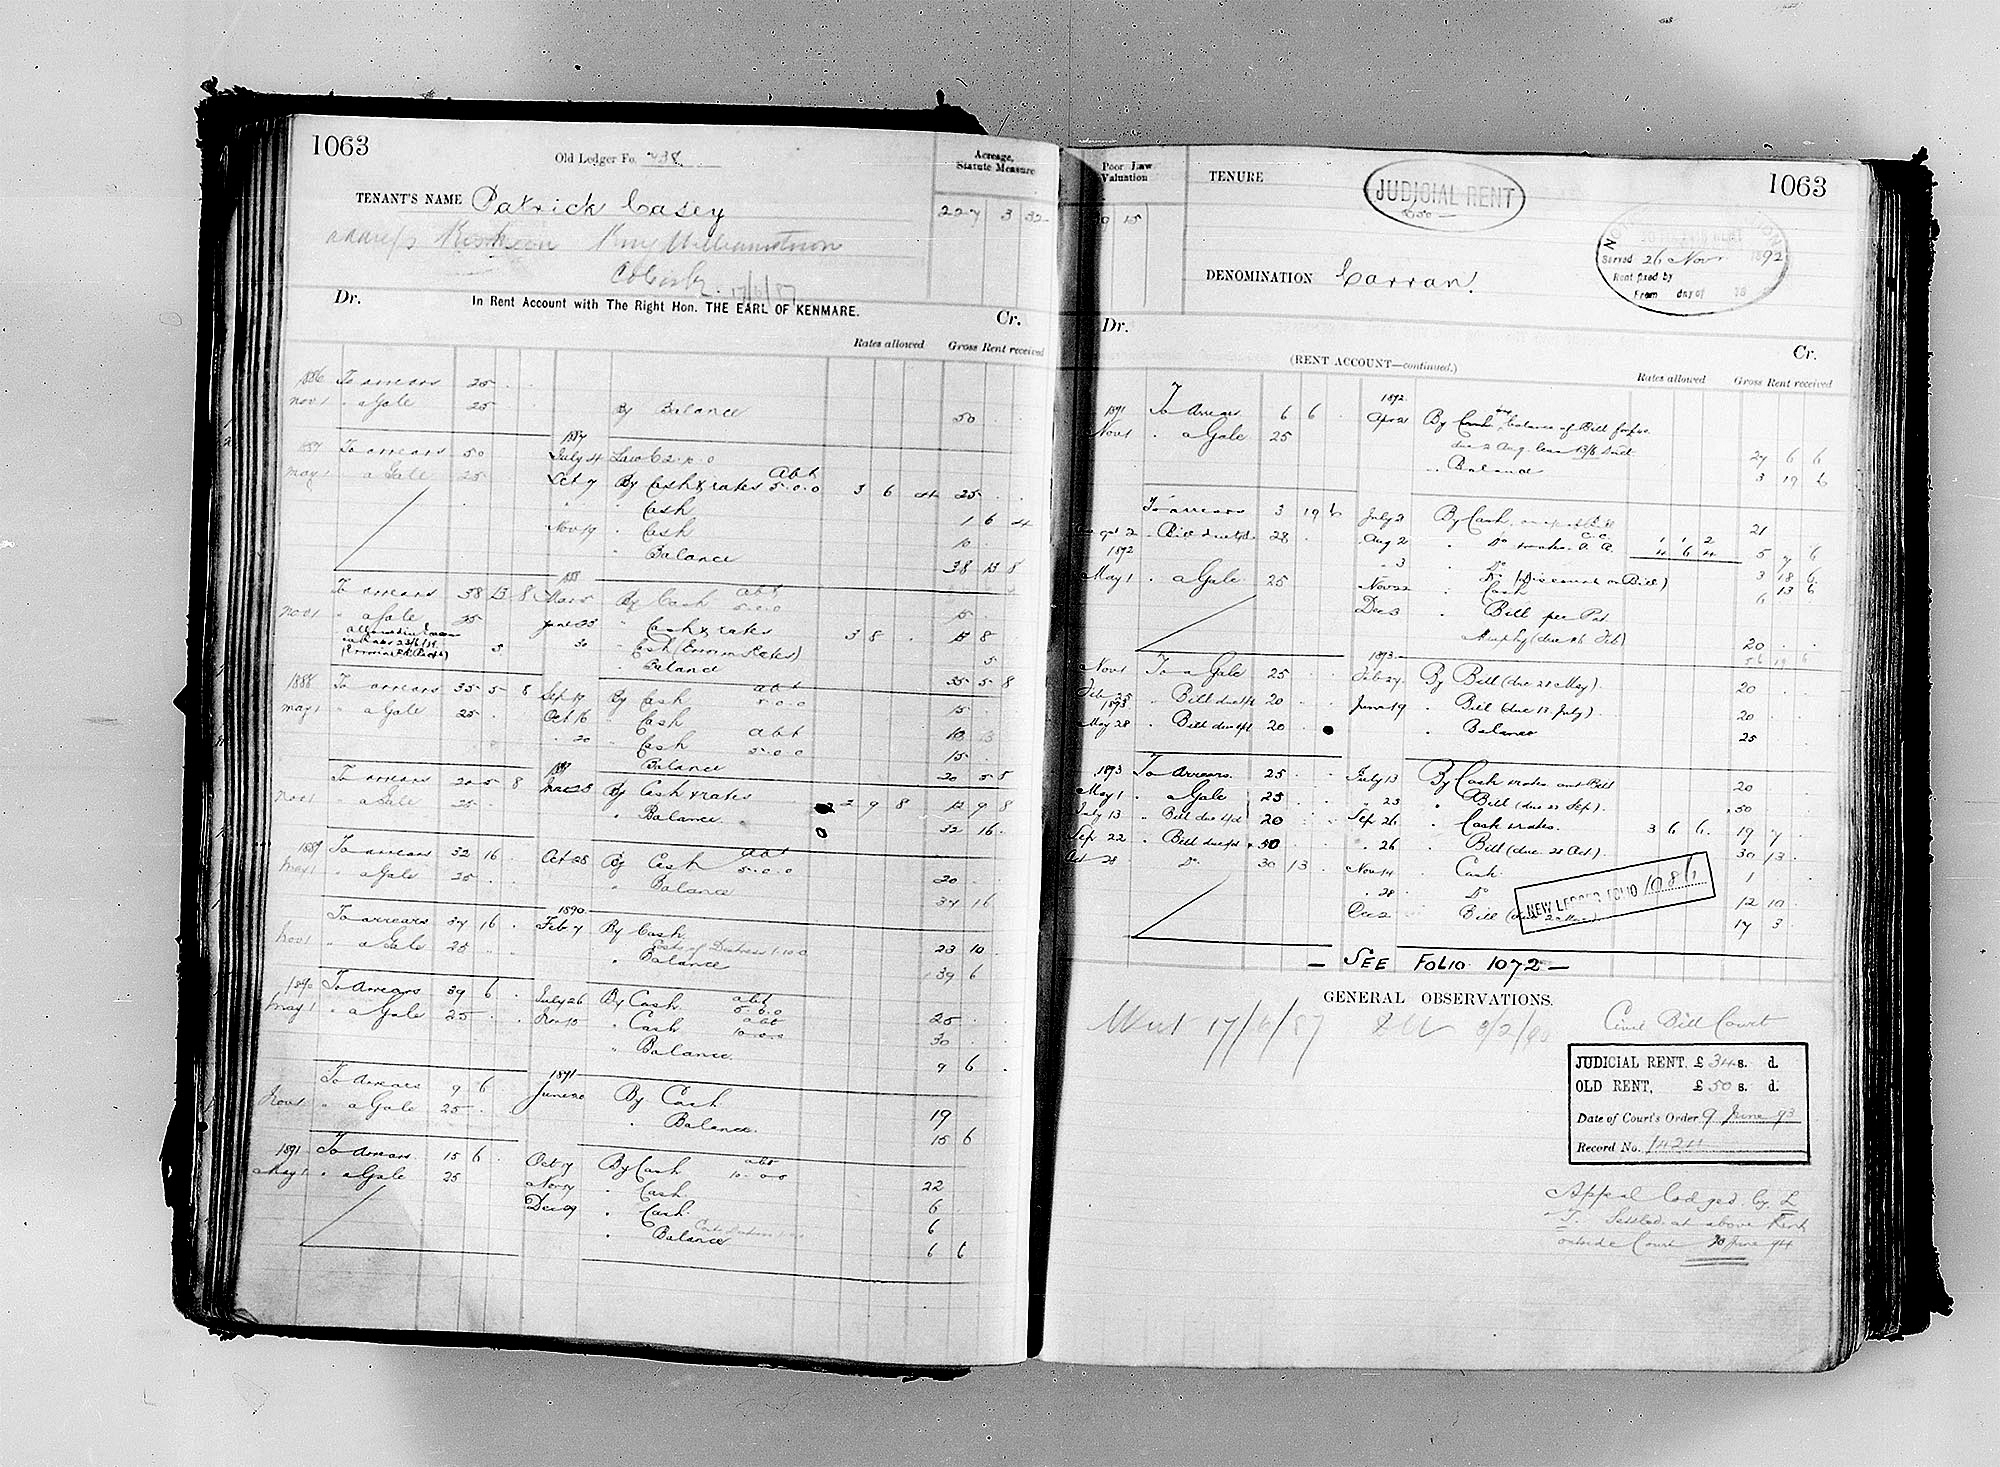 1063
Old Ledger Fo. 738
Acreage,
Statute Measure
TENANT'S NAME Patrick Casey
227 3 32
Address Kingwilliamstown
Co Cork 17/6/87
Dr. In Rent Account with The Right Hon. THE EARL OF KENMARE. Cr.
Rates allowed Gross Rent received
1886 To arrears 25
Nov 1 " a Gale 25 By Balance 50
1887
1887 To arrears 50 July 4 Law C 2.10.0
May 1 " a Gale 25 Oct 7 By Cash & rates abt 5.0.0 3 6 4 25
" Cash 1 6 4
Nov 19 " Cash 10
" Balance 38 13 8
1888
To arrears 38 13 8 Mar 5 By Cash abt 5.0.0 15
Nov 1 " a Gale 25 June 23 " Cash & rates 3 8 13 8
5 30 " Cash (Error in Rates) 5
" Balance 35 5 8
1888 To arrears 35 5 8 Sep 17 By Cash abt 5.0.0 15
May 1 " a Gale 25 Oct 16 " Cash 10
" 20 " Cash abt 5.0.0 15
Balance 20 5 8
To arrears 20 5 8 Mar 23 By Cash & rates 2 9 8 12 9 8
Nov 1 " a Gale 25 " Balance 32 16
1889 To arrears 32 16 Oct 28 By Cash abt 5.0.0 20
May 1 " a Gale 25 " Balance 37 16
1890
To arrears 37 16 Feb 7 By Cash 23 10
Nov 1 " a Gale 25 Costs of Distress 1.10.0
" Balance 39 6
1890 To Arrears 39 6 July 26 By Cash abt 5.0.0 25
May 1 " a Gale 25 " Cash abt 10.0.0 30
" Balance 9 6
1891
To Arrears 9 6 June 20 By Cash 19
Nov 1 " a Gale 25 " Balance 15 6
1891 To Arrears 15 6 Oct 17 By Cash abt 10.0.0 22
May 1 " a Gale 25 Nov 17 " Cash 6
Dec 29 " Cash 6
" Balance 6 6
Poor Law
Valuation
TENURE
JUDICIAL RENT
£50
1063
15
DENOMINATION Carran
Served 26 Nov 1892
Rent fixed by
From day of 18
Dr. Cr.
(RENT ACCOUNT—continued.)
Rates allowed Gross Rent received
1892
1891 To Arrears 6 6 Apr 21 By balance of Bill for
Nov 1 " a Gale 25 due 2 Aug less 13/6 Disct 27 6 6
" Balance 3 19 6
To arrears 3 19 6 July 2 By Cash 21
2 " Bill due 28 Aug 2 " Do rates 1 1 2
4 6 4 5 7 6
1892 " 3 " Do (Discount on Bill) 3 18 6
May 1 " a Gale 25 Nov 22 " Cash 13 6
6
Dec 3 " Bill per Pat
Murphy (due 16 Feb) 20
56 19 6
1893
Nov 1 To a Gale 25 Feb 27 By Bill (due 28 May) 20
Feb 25 1893 " Bill due 20 June 19 " Bill (due 13 July) 20
May 28 " Bill due 20 " Balance 25
1893 To Arrears 25 July 13 By Cash rates and Bill 20
May 1 " a Gale 25 " 23 " Bill (due 22 Sep) 50
July 13 " Bill due 20 Sep 26 " Cash & rates 3 6 6 19 7
Sep 22 " Bill due 50 " 26 " Bill (due 28 Oct) 30 13
Oct 28 Do 30 13 Nov 14 " Cash 1
" 28 " Do 12 10
Dec 2 " Bill 17 3
NEW LEDGER FOLIO 1086
— SEE FOLIO 1072 —
GENERAL OBSERVATIONS.
Writ 17/6/87 9/2/90 Civil Bill Court
JUDICIAL RENT, £ 34 s. d.
OLD RENT, £ 50 s. d.
Date of Court's Order 9 June 93
Record No. 1424
Appeal lodged by L
T. Settled at above Rent
outside Court 20 June 94